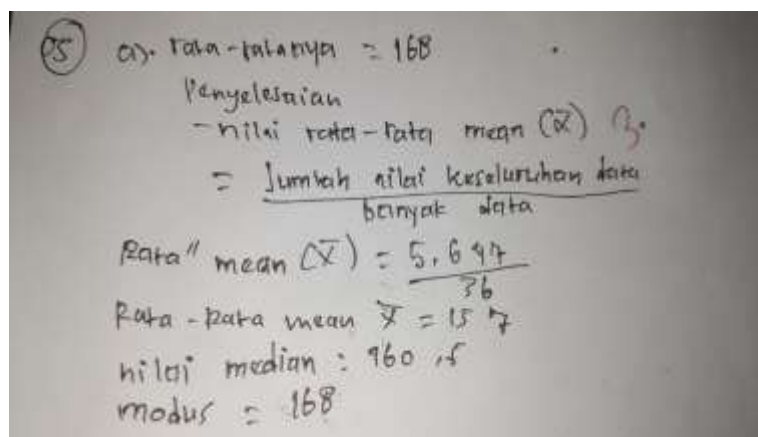 05 a). rata-ratanya = 168
Penyelesaian
- nilai rata-rata mean (x̄) 3.
= Jumlah nilai keseluruhan data
banyak data
Rata" mean (x̄) = 5.647
36
Rata-Rata mean x̄ = 157
nilai median : 160,5
modus = 168